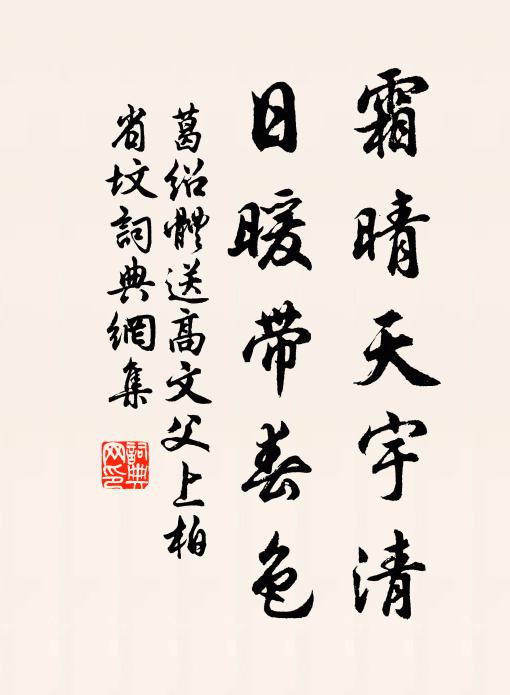 霜晴天宇清
日暖带春色
葛绍體送高文父上柏
省坟詞典網集
詞典
网印